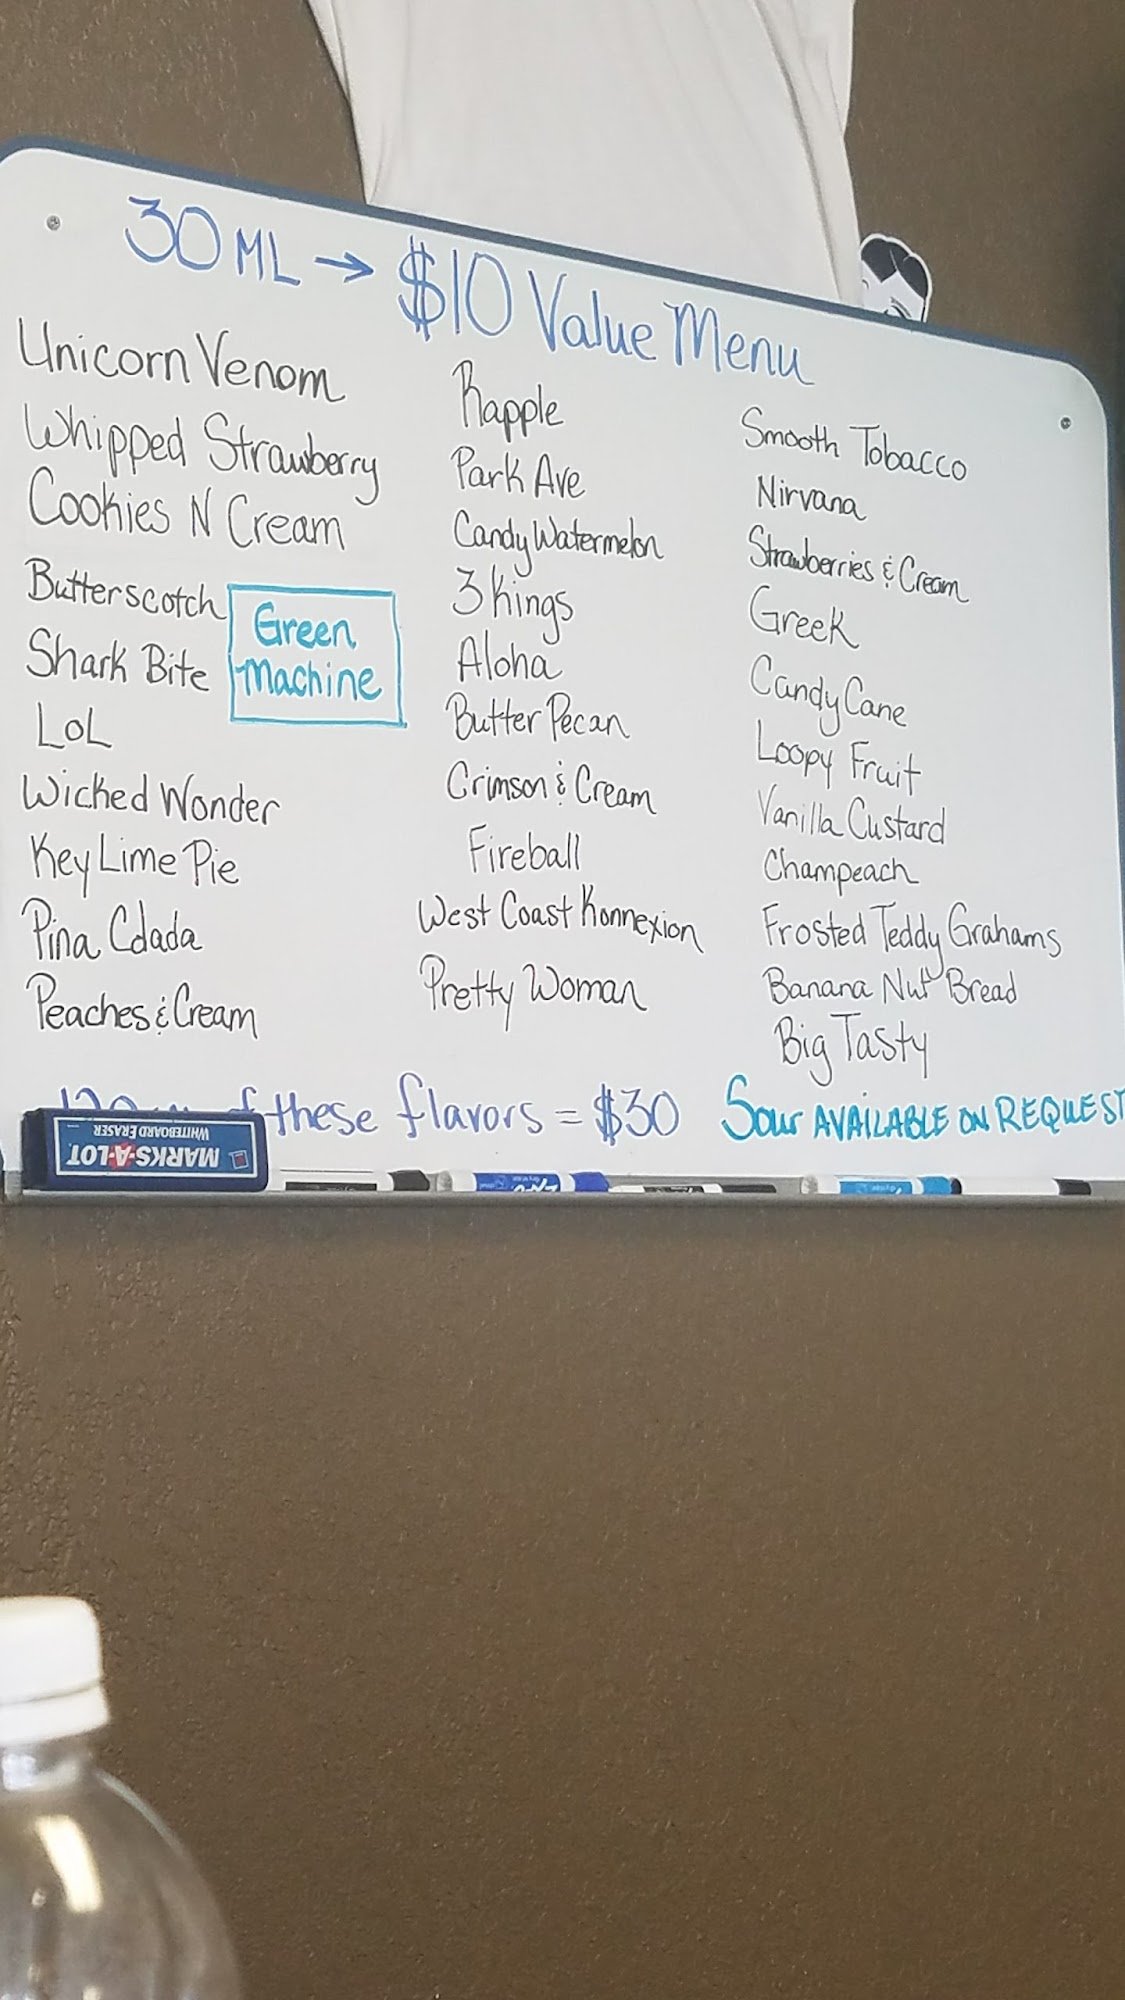 30 ML → $10 Value Menu
Unicorn Venom
Whipped Strawberry
Cookies N Cream
Butterscotch
Shark Bite
LOL
Wicked Wonder
Key Lime Pie
Pina Colada
Peaches & Cream
Green
Machine
Rapple
Park Ave
Candy Watermelon
3 Kings
Aloha
Butter Pecan
Crimson & Cream
Fireball
West Coast Konnexion
Pretty Woman
Smooth Tobacco
Nirvana
Strawberries & Cream
Greek
Candy Cane
Loopy Fruit
Vanilla Custard
Champeach
Frosted Teddy Grahams
Banana Nut Bread
Big Tasty
of these flavors = $30
Sour AVAILABLE ON REQUEST
MARKS-A-LOT
WHITEBOARD ERASER